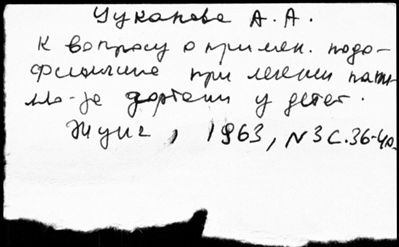 Чуканова А. А.
К вопросу о примен. подо-
филлина при лечении папил-
ло-за гортани у детей.
ЖУНГ, 1963, N3 С.36-40.